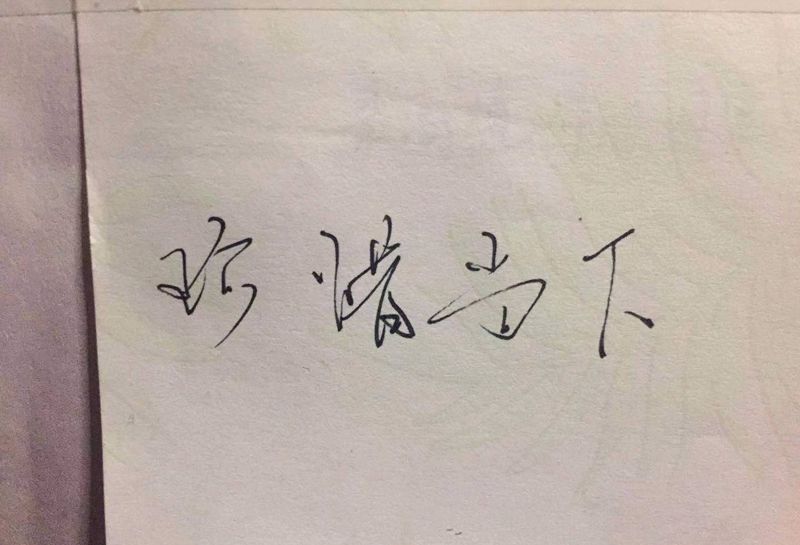 珍惜当下